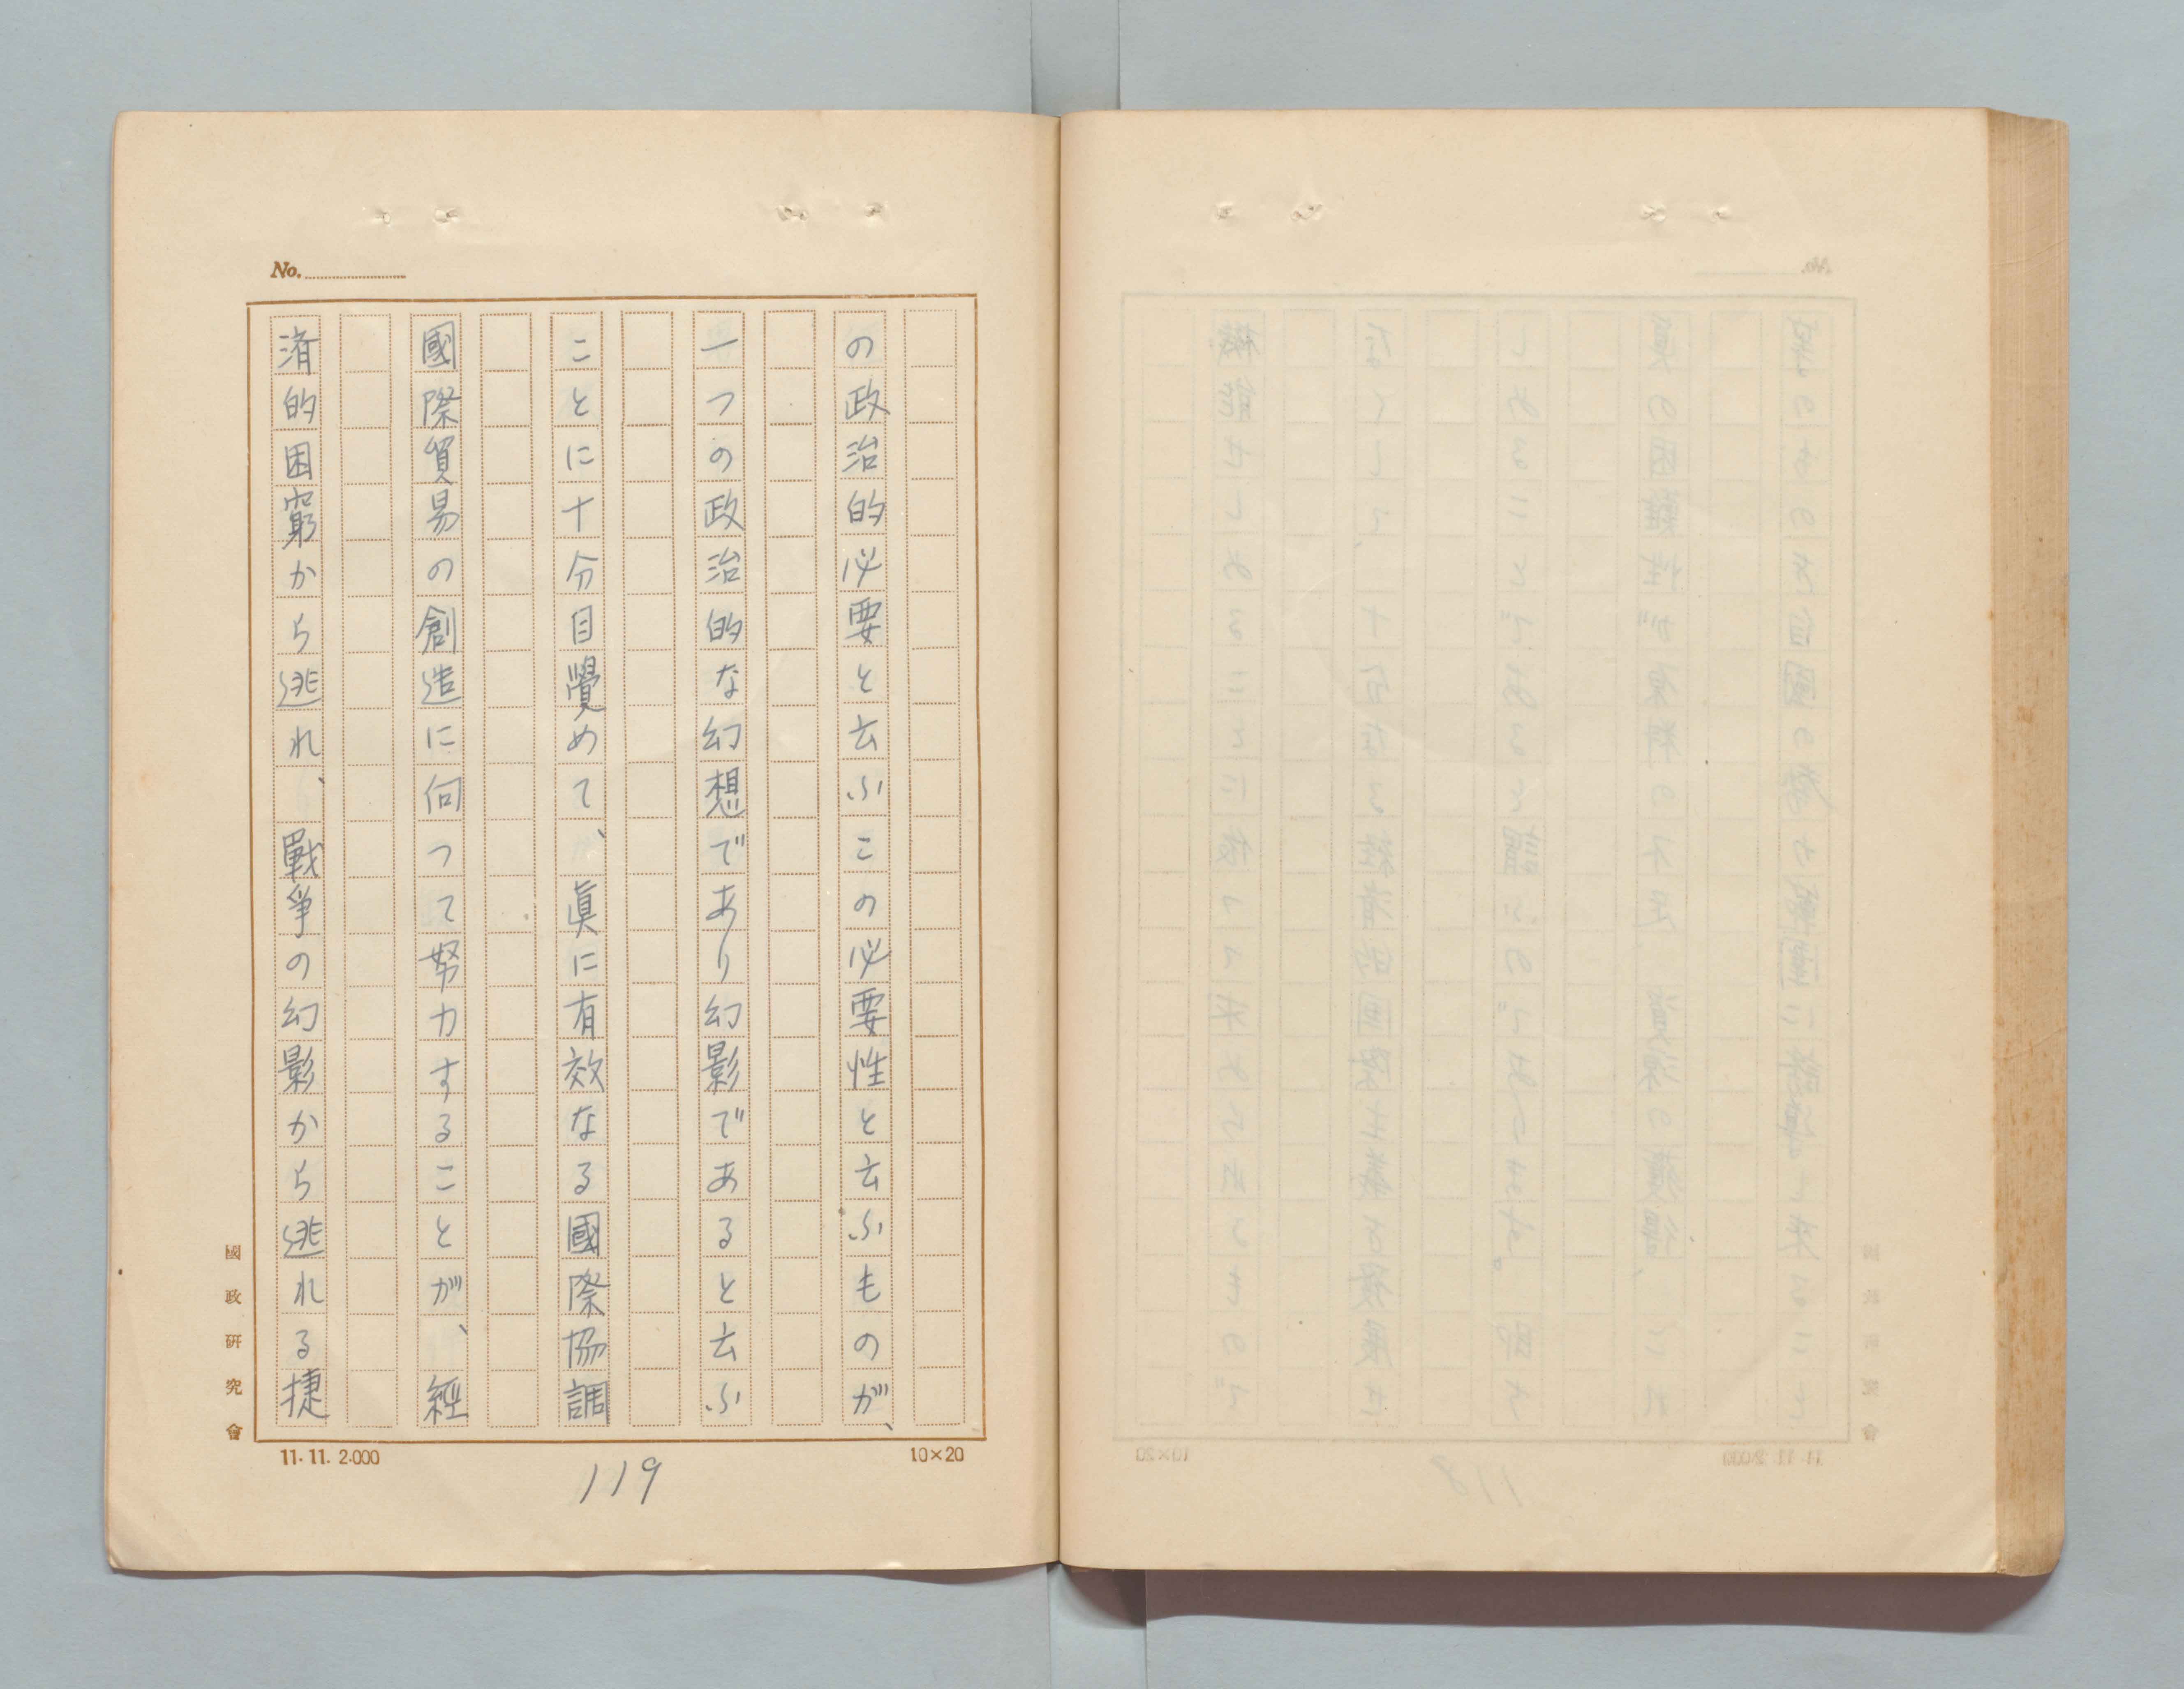 No.
の政治的必要と云ふこの必要性と云ふものが、
一つの政治的な幻想であり幻影であると云ふ
ことに十分目覺めて、眞に有效なる國際協調
國際貿易の創造に何つて努力することが、經
済的困窮から逃れ、戰爭の幻影から逃れる捷
國政研究會
11.11.2.000
10×20
119